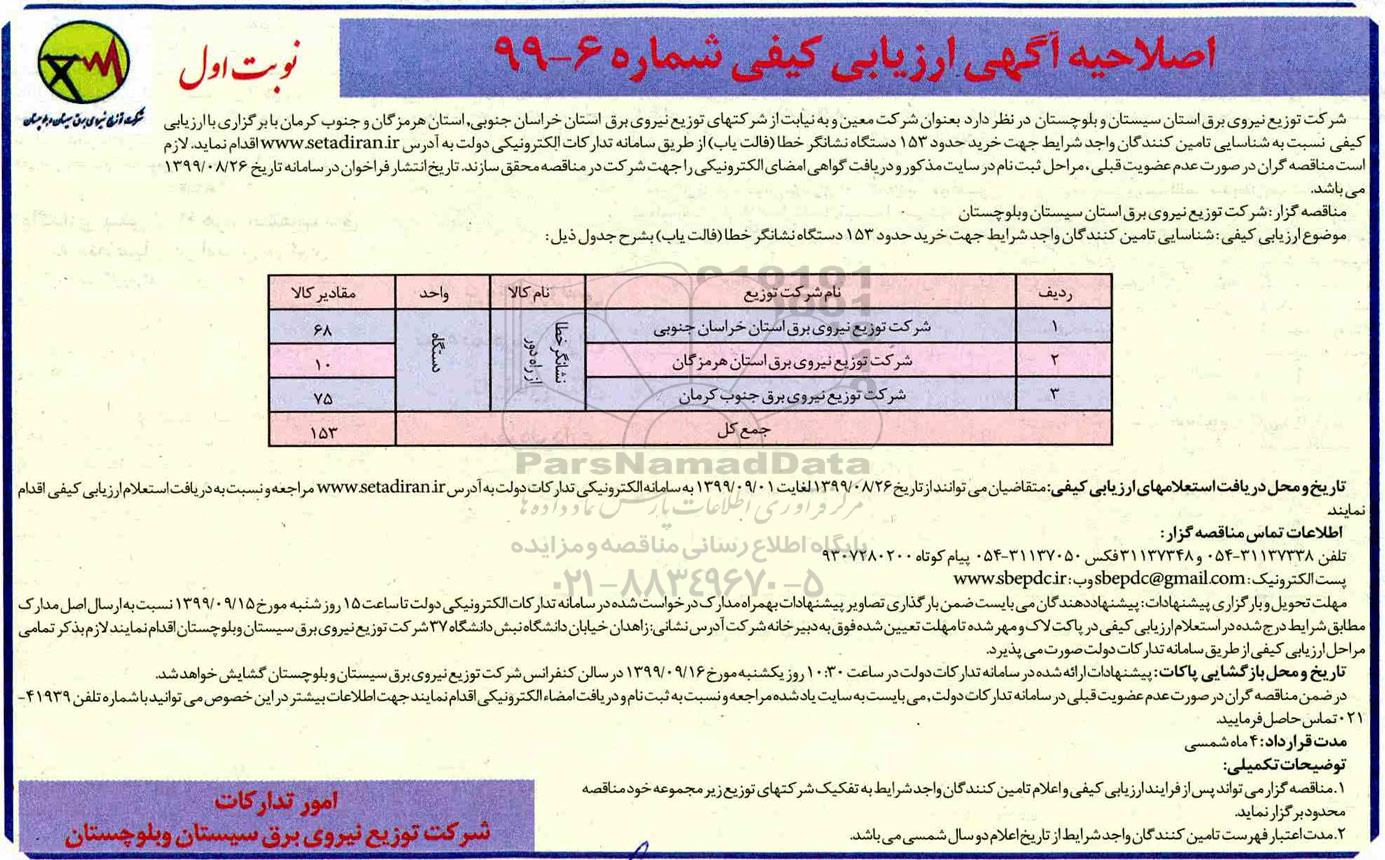 اصلاحیه آگهی ارزیابی کیفی شماره ۶-۹۹
نوبت اول
شرکت توزیع نیروی برق سیستان و بلوچستان
شرکت توزیع نیروی برق استان سیستان و بلوچستان در نظر دارد بعنوان شرکت معین و به نیابت از شرکتهای توزیع نیروی برق استان خراسان جنوبی، استان هرمزگان و جنوب کرمان با برگزاری با ارزیابی
کیفی نسبت به شناسایی تامین کنندگان واجد شرایط جهت خرید حدود ۱۵۳ دستگاه نشانگر خطا (فالت یاب) از طریق سامانه تدارکات الکترونیکی دولت به آدرس www.setadiran.ir اقدام نماید. لازم
است مناقصه گران در صورت عدم عضویت قبلی، مراحل ثبت نام در سایت مذکور و دریافت گواهی امضای الکترونیکی را جهت شرکت در مناقصه محقق سازند. تاریخ انتشار فراخوان در سامانه تاریخ ۱۳۹۹/۰۸/۲۶
می باشد.
مناقصه گزار: شرکت توزیع نیروی برق استان سیستان وبلوچستان
موضوع ارزیابی کیفی: شناسایی تامین کنندگان واجد شرایط جهت خرید حدود ۱۵۳ دستگاه نشانگر خطا (فالت یاب) بشرح جدول ذیل:
ردیف نام شرکت توزیع نام کالا واحد مقادیر کالا
۱ شرکت توزیع نیروی برق استان خراسان جنوبی نشانگر خطا از راه دور دستگاه ۶۸
۲ شرکت توزیع نیروی برق استان هرمزگان ۱۰
۳ شرکت توزیع نیروی برق جنوب کرمان ۷۵
جمع کل ۱۵۳
ParsNamadData
مرکز فرآوری اطلاعات پارس نماد داده ها
پایگاه اطلاع رسانی مناقصه و مزایده
۰۲۱-۸۸۳۴۹۶۷۰-۵
تاریخ و محل دریافت استعلامهای ارزیابی کیفی: متقاضیان می توانند از تاریخ ۱۳۹۹/۰۸/۲۶ لغایت ۱۳۹۹/۰۹/۰۱ به سامانه الکترونیکی تدارکات دولت به آدرس www.setadiran.ir مراجعه و نسبت به دریافت استعلام ارزیابی کیفی اقدام
نمایند.
اطلاعات تماس مناقصه گزار:
تلفن ۳۱۱۳۷۳۳۸-۰۵۴ و ۳۱۱۳۷۳۴۸ فکس ۳۱۱۳۷۰۵۰-۰۵۴ پیام کوتاه ۹۳۰۷۲۸۰۲۰۰
پست الکترونیک: sbepdc@gmail.com وب: www.sbepdc.ir
مهلت تحویل و بارگزاری پیشنهادات: پیشنهاددهندگان می بایست ضمن بارگذاری تصاویر پیشنهادات بهمراه مدارک درخواست شده در سامانه تدارکات الکترونیکی دولت تا ساعت ۱۵ روز شنبه مورخ ۱۳۹۹/۰۹/۱۵ نسبت به ارسال اصل مدارک
مطابق شرایط درج شده در استعلام ارزیابی کیفی در پاکت لاک و مهر شده تا مهلت تعیین شده فوق به دبیرخانه شرکت آدرس نشانی: زاهدان خیابان دانشگاه نبش دانشگاه ۳۷ شرکت توزیع نیروی برق سیستان وبلوچستان اقدام نمایند لازم بذکر تمامی
مراحل ارزیابی کیفی از طریق سامانه تدارکات دولت صورت می پذیرد.
تاریخ و محل بازگشایی پاکات: پیشنهادات ارائه شده در سامانه تدارکات دولت در ساعت ۱۰:۳۰ روز یکشنبه مورخ ۱۳۹۹/۰۹/۱۶ در سالن کنفرانس شرکت توزیع نیروی برق سیستان و بلوچستان گشایش خواهد شد.
در ضمن مناقصه گران در صورت عدم عضویت قبلی در سامانه تدارکات دولت، می بایست به سایت یاد شده مراجعه و نسبت به ثبت نام و دریافت امضاء الکترونیکی اقدام نمایند جهت اطلاعات بیشتر در این خصوص می توانید با شماره تلفن ۴۱۹۳۹-
۰۲۱ تماس حاصل فرمایید.
مدت قرارداد: ۴ ماه شمسی
توضیحات تکمیلی:
۱. مناقصه گزار می تواند پس از فرایند ارزیابی کیفی و اعلام تامین کنندگان واجد شرایط به تفکیک شرکتهای توزیع زیر مجموعه خود مناقصه
محدود برگزار نماید.
۲. مدت اعتبار فهرست تامین کنندگان واجد شرایط از تاریخ اعلام دو سال شمسی می باشد.
امور تدارکات
شرکت توزیع نیروی برق سیستان وبلوچستان